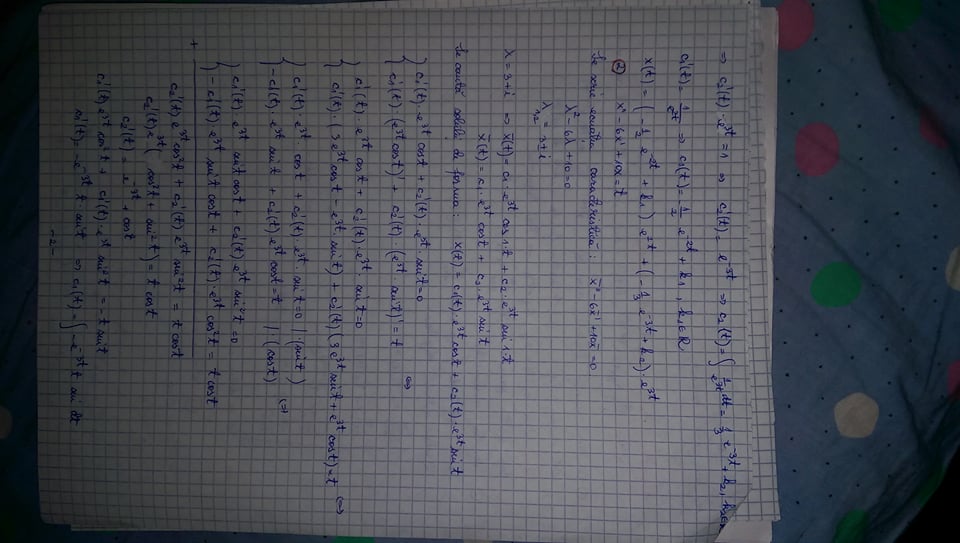 ⇒ c₂'(t)·e^{3t} = 1 ⇒ c₂'(t) = e^{-3t} ⇒ c₂(t) = ∫ 1/e^{3t} dt = 1/3 e^{-3t} + k₂, k₂∈R
c₁'(t) = 1/e^{2t} ⇒ c₁(t) = -1/2 e^{-2t} + k₁, k₁∈R
x(t) = (-1/2 e^{-2t} + k₁) e^{2t} + (-1/3 e^{-3t} + k₂)·e^{3t}
② x'' - 6x' + 10x = t
Se scrie ecuatia caracteristică: x̄'' - 6x̄' + 10x̄ = 0
λ² - 6λ + 10 = 0
λ₁,₂ = 3 ± i
λ = 3+i ⇒ x̄(t) = c₁·e^{3t} cos 1·t + c₂·e^{3t} sin 1·t
x̄(t) = c₁·e^{3t} cos t + c₂·e^{3t} sin t
Se caută soluții de forma: x(t) = c₁(t)·e^{3t} cos t + c₂(t)·e^{3t} sin t
{ c₁'(t)·e^{3t} cos t + c₂'(t)·e^{3t}·sin t = 0
c₁'(t)·(e^{3t} cos t)' + c₂'(t)·(e^{3t}·sin t)' = t ⇔
{ c₁'(t)·e^{3t} cos t + c₂'(t)·e^{3t}·sin t = 0
c₁'(t)·(3e^{3t} cos t - e^{3t}·sin t) + c₂'(t)(3e^{3t} sin t + e^{3t} cos t) = t ⇔
{ c₁'(t)·e^{3t}·cos t + c₂'(t)·e^{3t}·sin t = 0 |·(sin t)
-c₁'(t)·e^{3t} sin t + c₂'(t) e^{3t} cos t = t |·(cos t) ⇔
{ c₁'(t)·e^{3t} sin t cos t + c₂'(t) e^{3t} sin² t = 0
-c₁'(t)·e^{3t} sin t cos t + c₂'(t)·e^{3t} cos² t = t cos t
+
c₂'(t) e^{3t} cos² t + c₂'(t) e^{3t} sin² t = t cos t
c₂'(t) e^{3t} (cos² t + sin² t) = t cos t
c₂'(t) = e^{-3t} t cos t
c₁'(t) e^{3t} cos² t + c₁'(t)·e^{3t} sin² t = -t sin t
c₁'(t) = -e^{-3t} t·sin t ⇒ c₁(t) = ∫ -e^{-3t} t sin dt
-2-